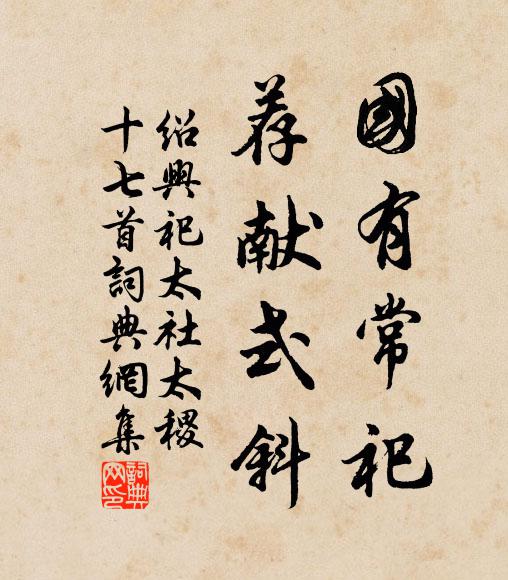 國有常祀
荐献式斜
绍興祀太社太稷
十七首詞典網集
詞典网印